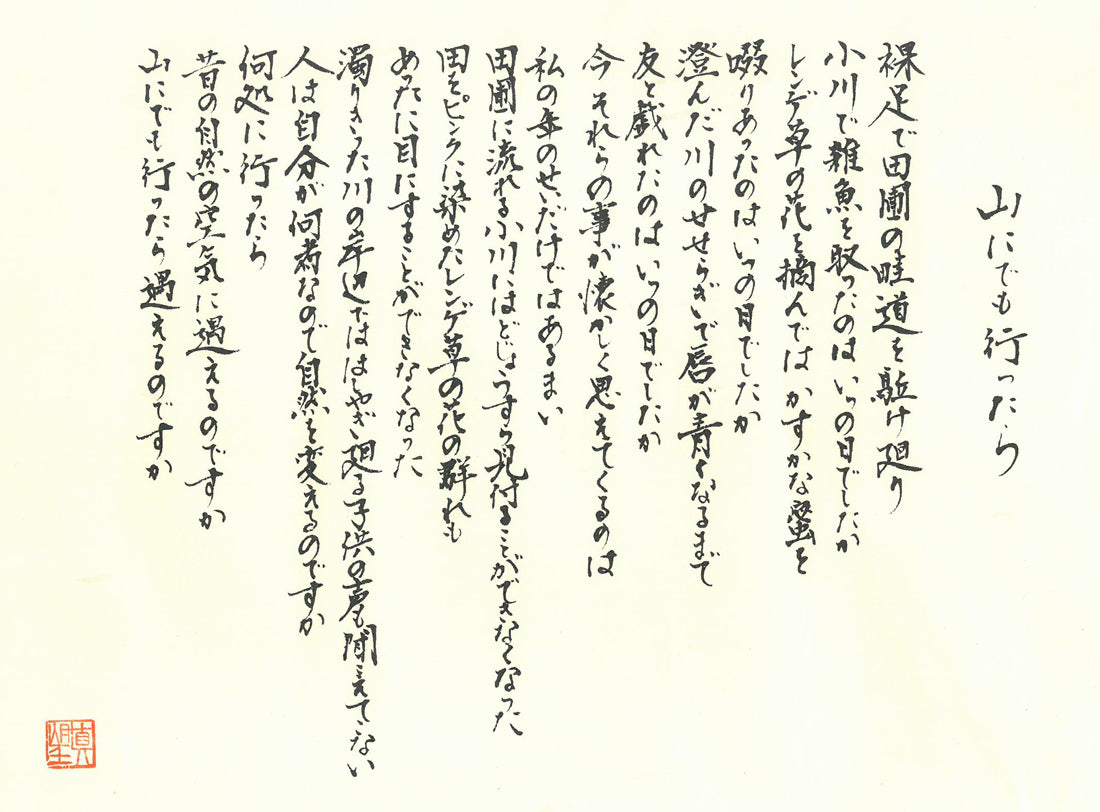 山にでも行ったら
裸足で田圃の畦道を駈け廻り
小川で雑魚を取ったのはいつの日でしたか
レンゲ草の花を摘んでは かすかな蜜を
啜りあったのはいつの日でしたか
澄んだ川のせせらぎで唇が青くなるまで
友と戯れたのはいつの日でしたか
今 それらの事が懐かしく思えてくるのは
私の年のせいだけではあるまい
田圃に流れる小川にはどじょうすら見付ることができなくなった
田をピンクに染めたレンゲ草の花の群れも
めったに目にすることができなくなった
濁りきった川の岸辺でははしゃぎ廻る子供の声も聞こえてこない
人は自分が何者なので自然を変えるのですか
何処に行ったら
昔の自然の空気に遇えるのですか
山にでも行ったら遇えるのですか